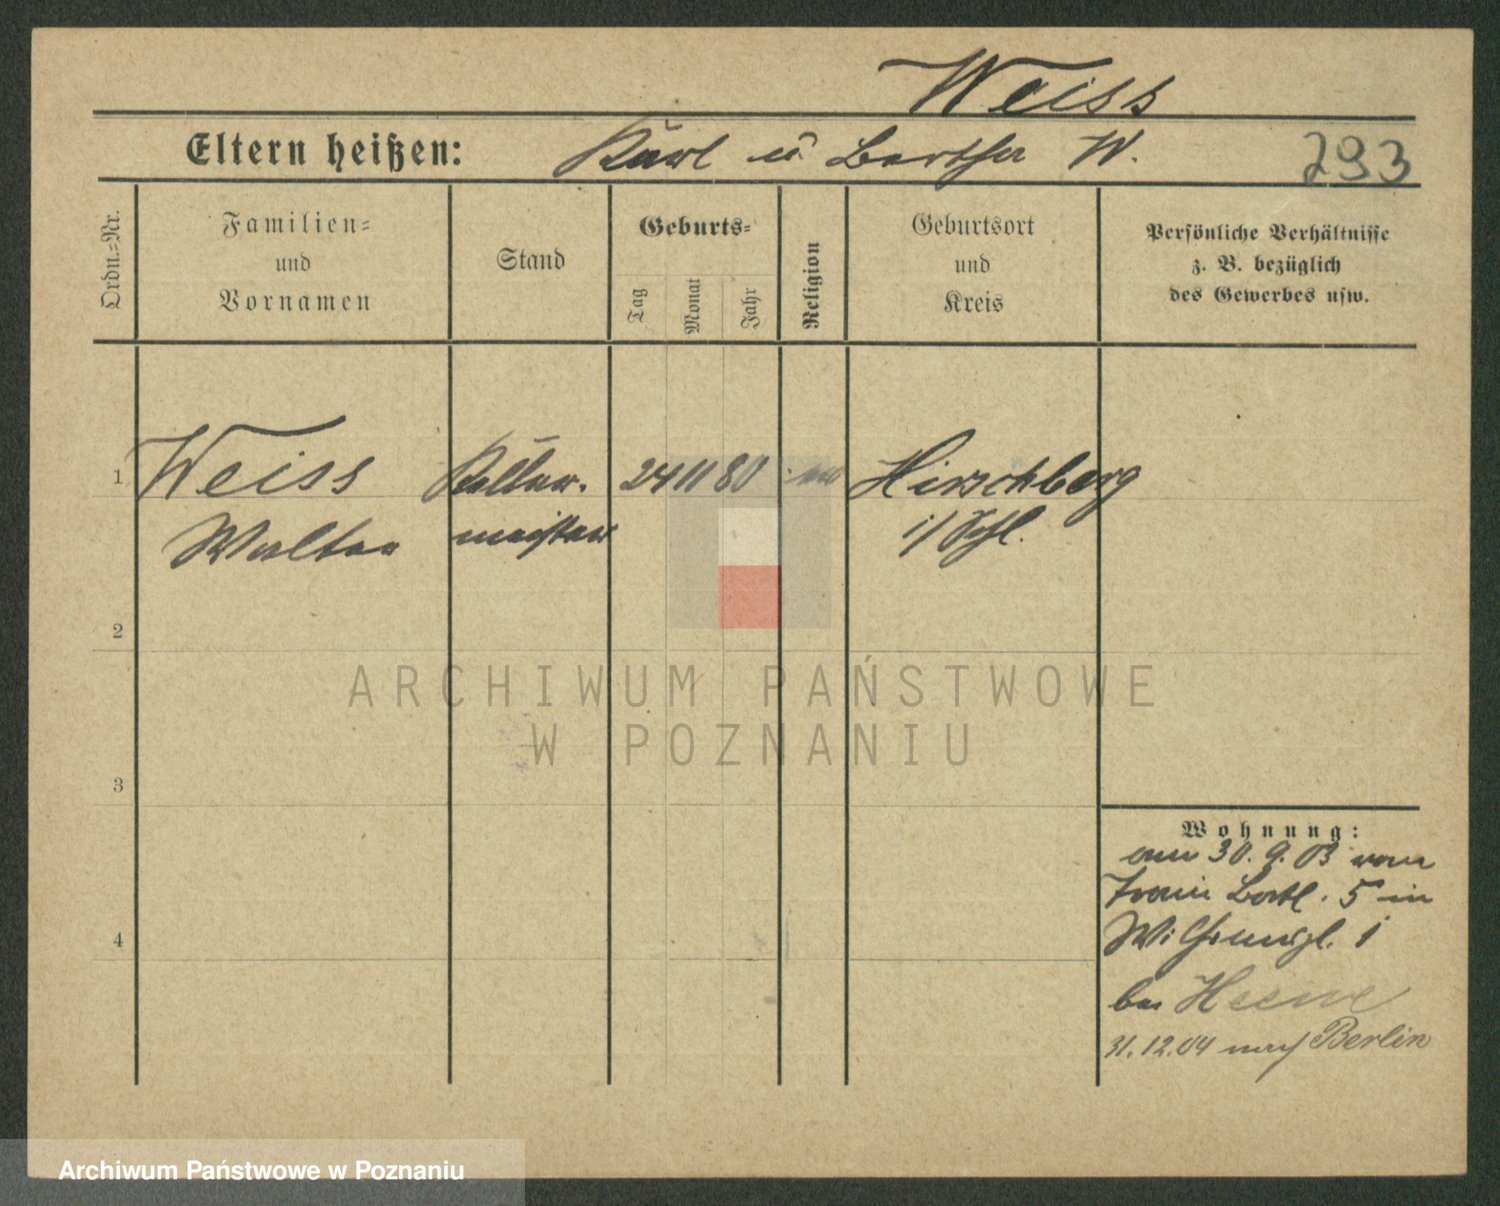 Weiss
Eltern heißen: Karl u. Bertha W. 293
Ordn.-Nr.
Familien-
und
Vornamen
Stand
Geburts-
Tag
Monat
Jahr
Religion
Geburtsort
und
Kreis
Persönliche Verhältnisse
z. B. bezüglich
des Gewerbes usw.
1 Weiss 24 11 80 Hirschberg
Walter meister i/ Schl.
2
ARCHIWUM PAŃSTWOWE
W POZNANIU
3
4
Wohnung:
am 30. 9. 03 vom
Train Batl. 5 in
1
bei
31.12.04 nach Berlin
Archiwum Państwowe w Poznaniu